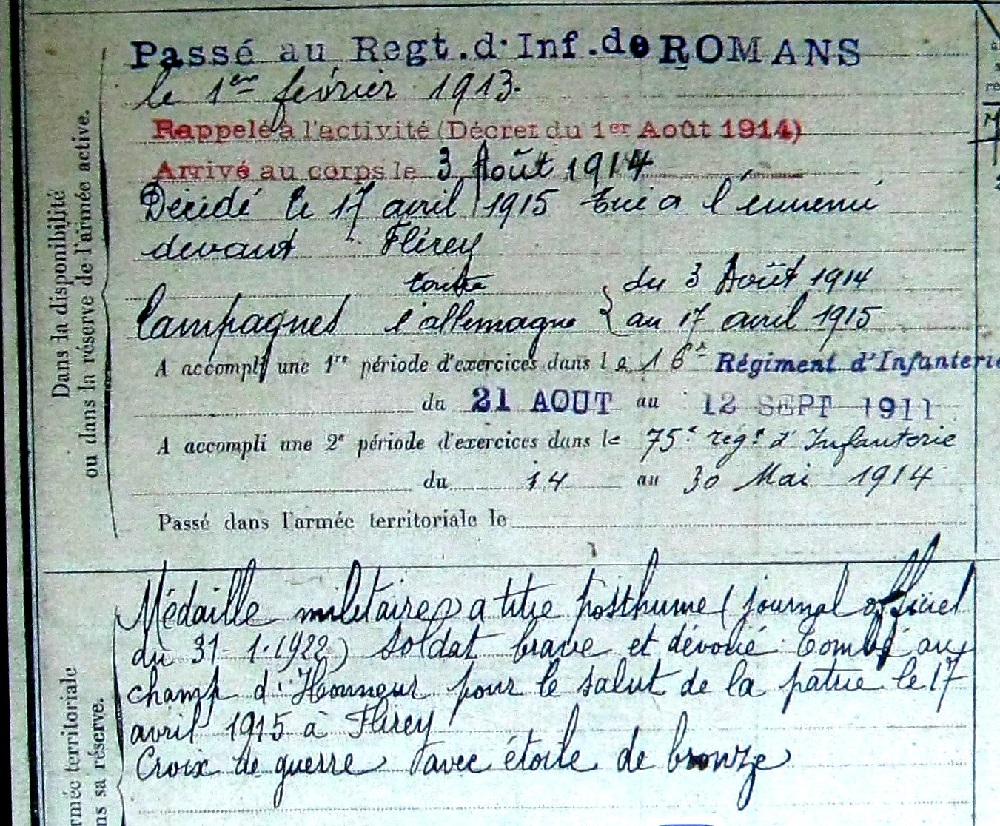 Passé au Regt.d'Inf.de ROMANS
le 1er février 1913.
Rappelé à l'activité (Décret du 1er Août 1914)
Arrivé au corps le 3 Août 1914
Décédé le 17 avril 1915 Tué à l'ennemi
devant Flirey
contre
du 3 Août 1914
Campagnes l'allemagne
au 17 avril 1915
A accompli une 1re période d'exercices dans le 16e Régiment d'Infanterie
du 21 AOUT au 12 SEPT 1911
A accompli une 2e période d'exercices dans le 75e régt d'Infanterie
du 14 au 30 Mai 1914
Passé dans l'armée territoriale le
Dans la disponibilité
ou dans la réserve de l'armée active.
Médaille militaire a titre posthume (journal officiel
du 31-1-1922) Soldat brave et dévoué Tombé au
champ d'Honneur pour le salut de la patrie le 17
avril 1915 à Flirey
Croix de guerre avec étoile de bronze
rmée territoriale
ns sa réserve.